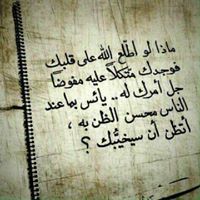 ماذا لو اطّلع الله على قلبك
فوجدك متكلاً عليه مفوضاً
جل أمرك له .. يائس بما عند
الناس محسن الظن به ،
أتظن أن سيخيّبك ؟